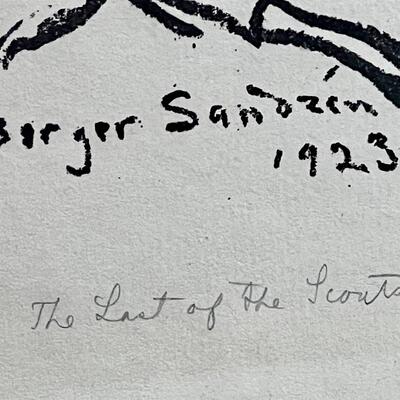 Birger Sandzén
1923
The Last of the Scouts